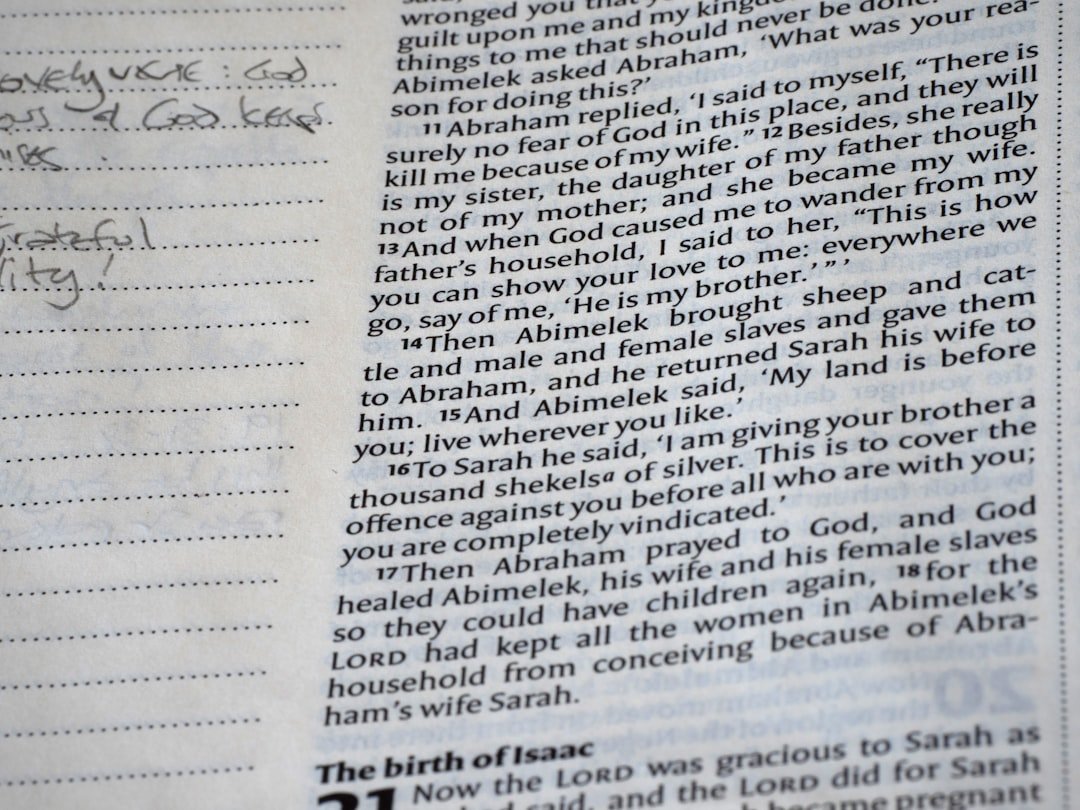 ovely verse : God
& God keeps
Grateful
lity!
wronged you that
guilt upon me and my kingdom
things to me that should never be done.'
Abimelek asked Abraham, 'What was your rea-
son for doing this?'
11 Abraham replied, 'I said to myself, “There is
surely no fear of God in this place, and they will
kill me because of my wife.” 12 Besides, she really
is my sister, the daughter of my father though
not of my mother; and she became my wife.
13 And when God caused me to wander from my
father's household, I said to her, “This is how
you can show your love to me: everywhere we
go, say of me, ‘He is my brother.’ ” '
14 Then Abimelek brought sheep and cat-
tle and male and female slaves and gave them
to Abraham, and he returned Sarah his wife to
him. 15 And Abimelek said, 'My land is before
you; live wherever you like.'
16 To Sarah he said, 'I am giving your brother a
thousand shekelsa of silver. This is to cover the
offence against you before all who are with you;
you are completely vindicated.'
17 Then Abraham prayed to God, and God
healed Abimelek, his wife and his female slaves
so they could have children again, 18 for the
LORD had kept all the women in Abimelek's
household from conceiving because of Abra-
ham's wife Sarah.
The birth of Isaac
21 Now the LORD was gracious to Sarah as
had said, and the LORD did for Sarah
became pregnant